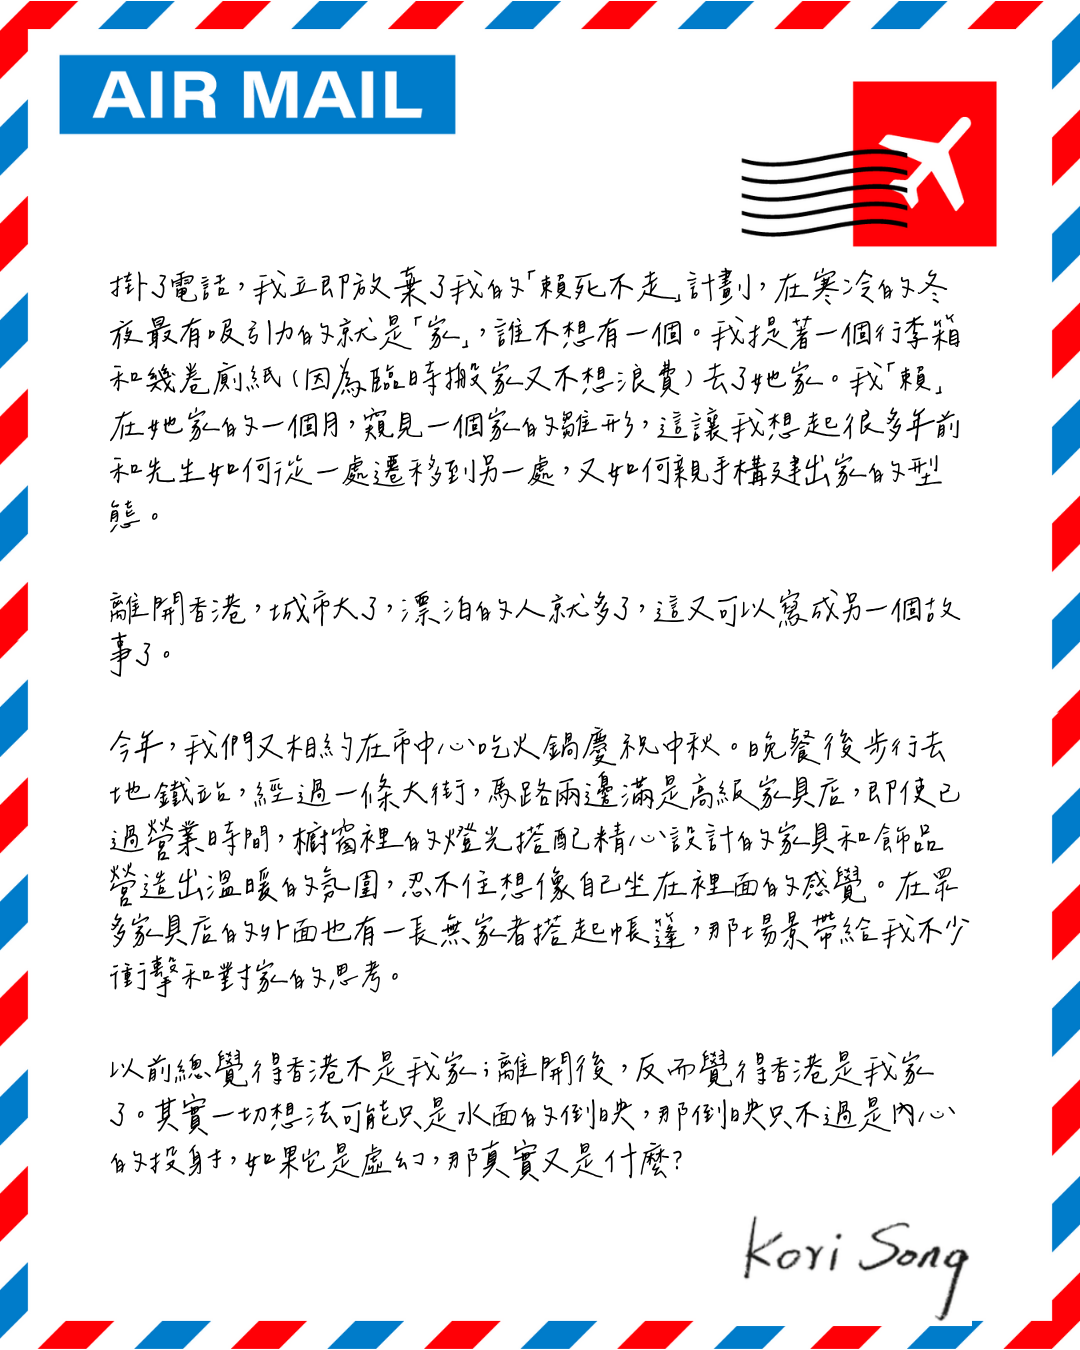 AIR MAIL
掛了電話，我立即放棄了我的「賴死不走」計劃，在寒冷的冬
夜最有吸引力的就是「家」，誰不想有一個。我提著一個行李箱
和幾卷廁紙（因為臨時搬家又不想浪費）去了她家。我「賴」
在她家的一個月，窺見一個家的雛形，這讓我想起很多年前
和先生如何從一處遷移到另一處，又如何親手構建出家的型
態。
離開香港，城市大了，漂泊的人就多了，這又可以寫成另一個故
事了。
今年，我們又相約在市中心吃火鍋慶祝中秋。晚餐後步行去
地鐵站，經過一條大街，馬路兩邊滿是高級家具店，即使已
過營業時間，櫥窗裡的燈光搭配精心設計的家具和飾品
營造出溫暖的氛圍，忍不住想像自己坐在裡面的感覺。在眾
多家具店的外面也有一長無家者搭起帳篷，那場景帶給我不少
衝擊和對家的思考。
以前總覺得香港不是我家；離開後，反而覺得香港是我家
了。其實一切想法可能只是水面的倒映，那倒映只不過是內心
的投射，如果它是虛幻，那真實又是什麼？
Kori Song